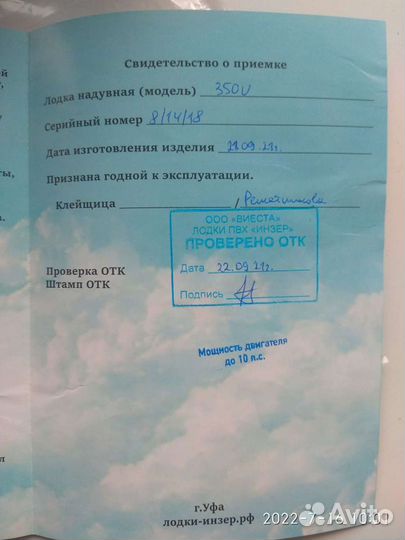 Свидетельство о приемке
Лодка надувная (модель) 350U
Серийный номер 8/14/18
Дата изготовления изделия 21.09.21г.
Признана годной к эксплуатации.
Клейщица / Решетникова
ООО «ВИЕСТА»
ЛОДКИ ПВХ «ИНЗЕР»
ПРОВЕРЕНО ОТК
Дата 22.09.21г.
Подпись
Проверка ОТК
Штамп ОТК
Мощность двигателя
до 10 л.с.
г.Уфа
лодки-инзер.рф
2022-7-16 10:01
Avito